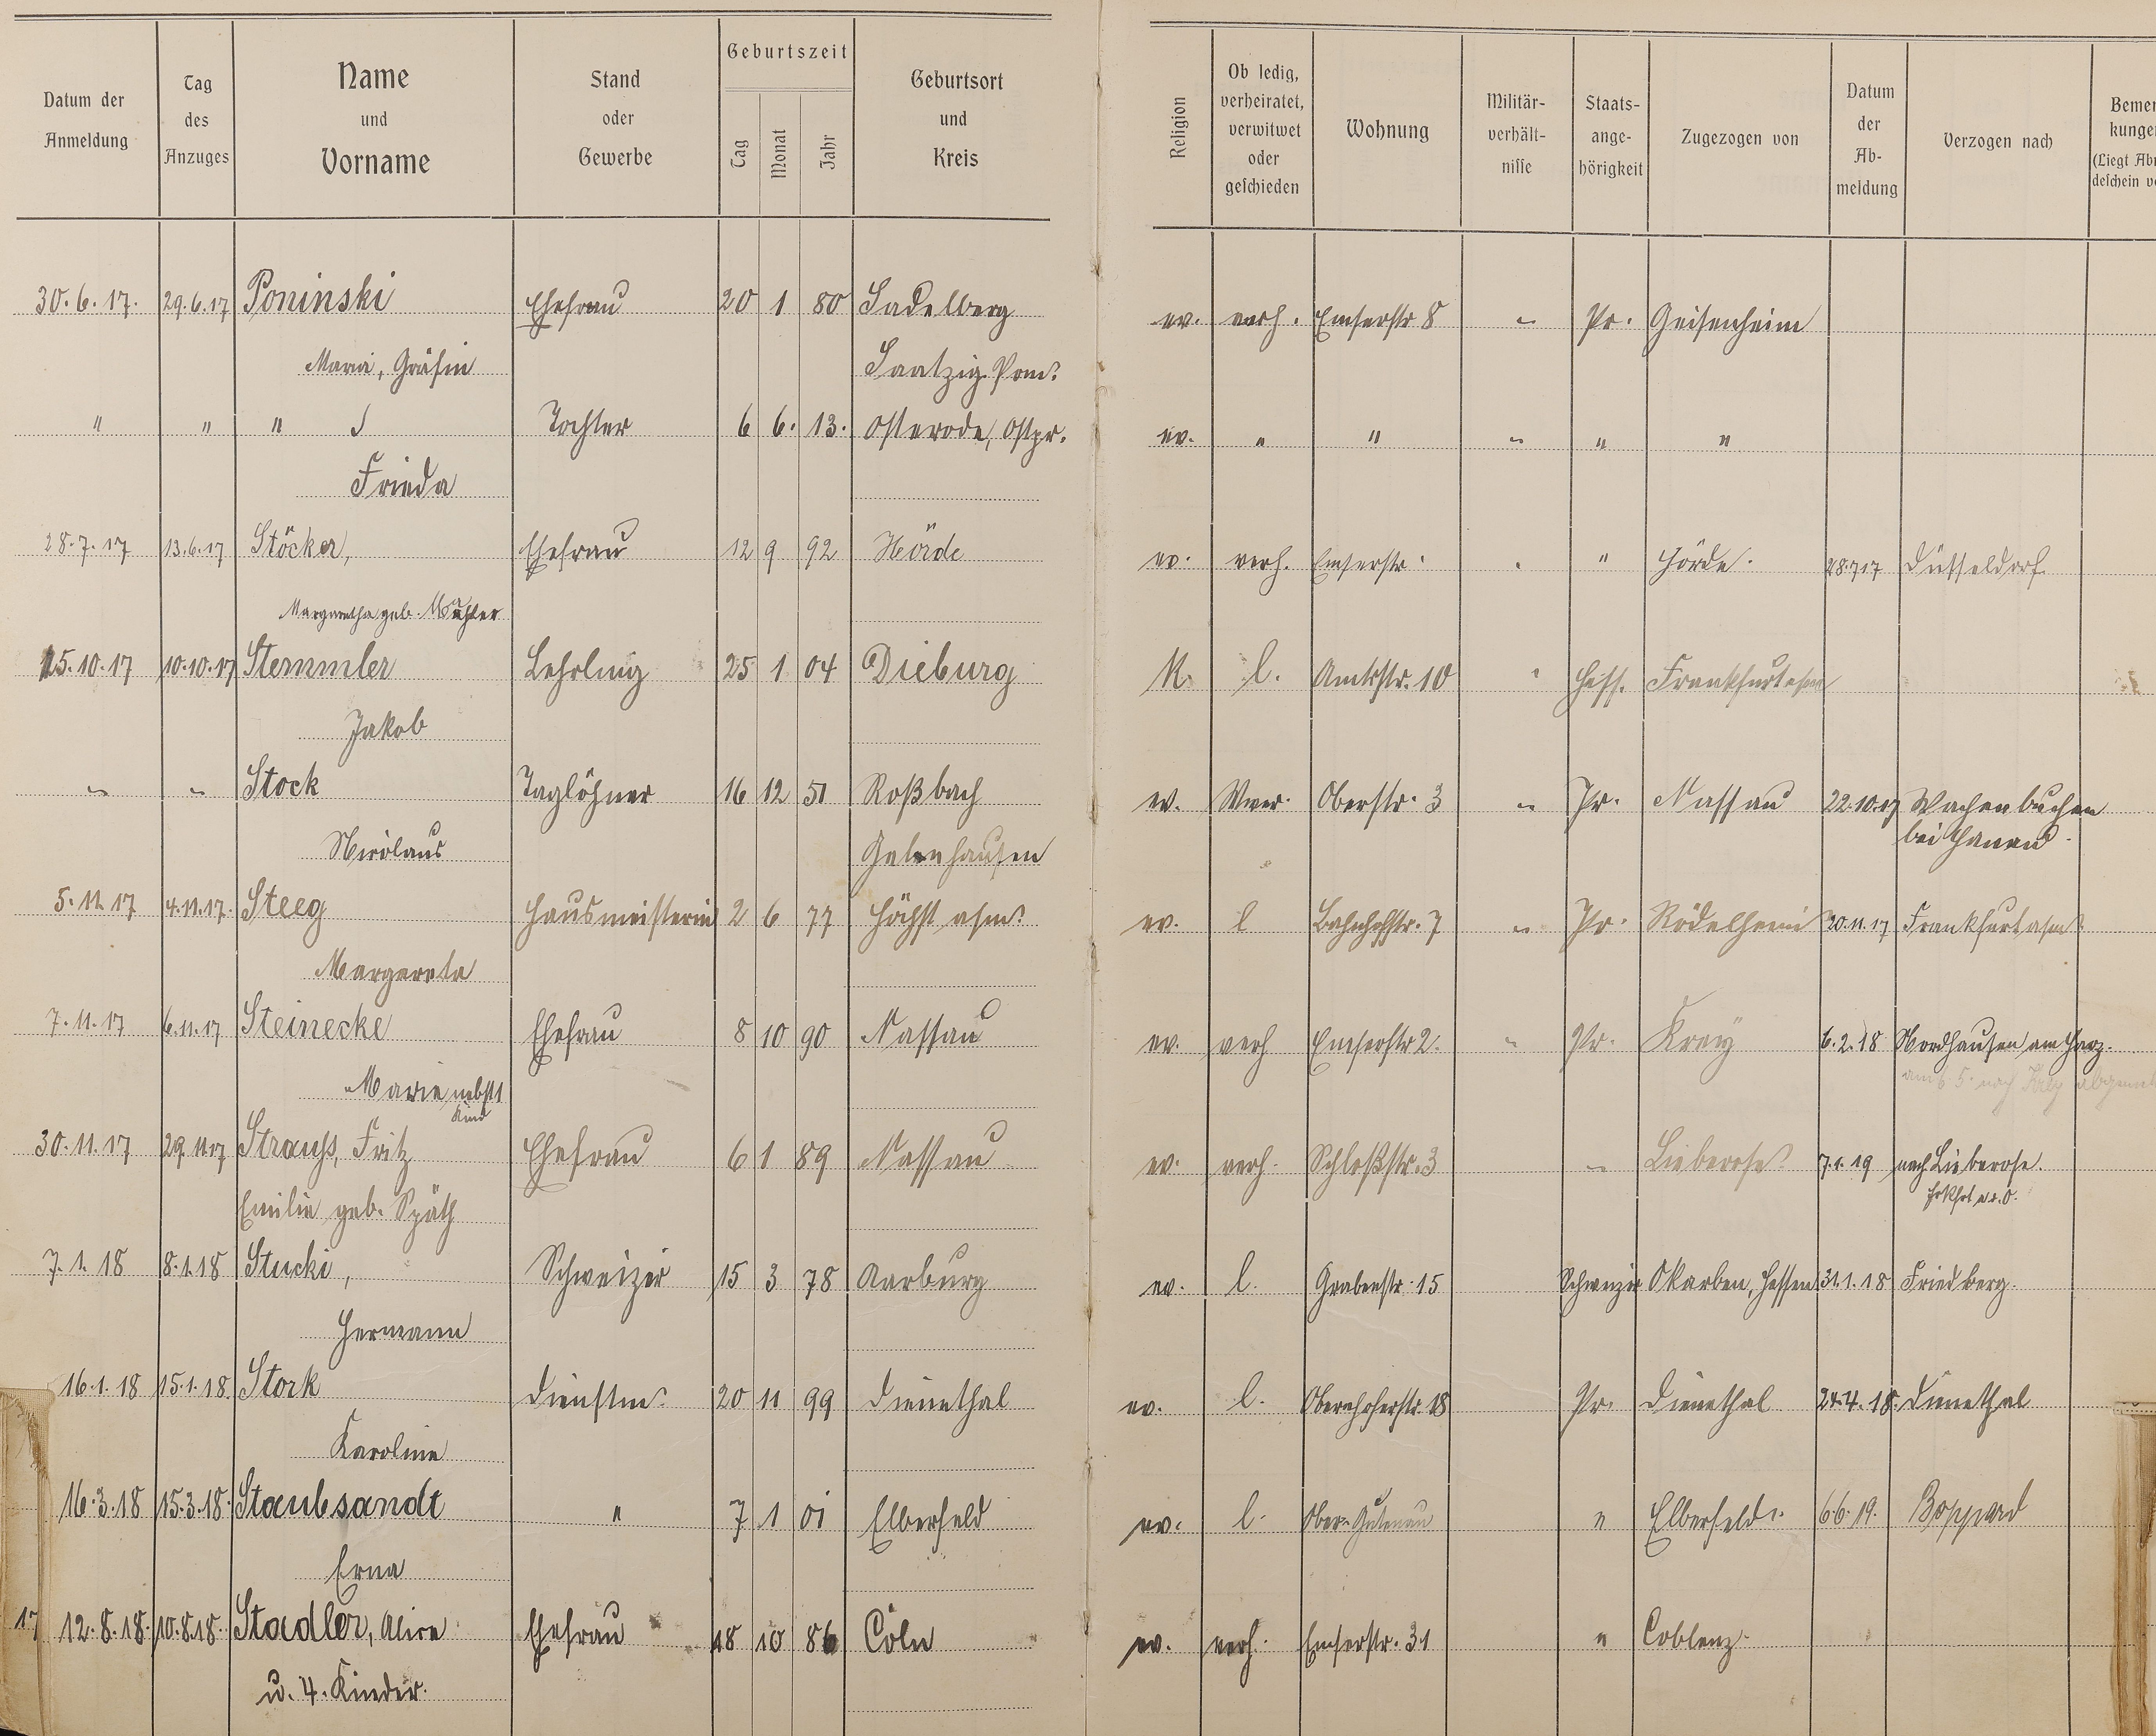 Datum der Anmeldung | Tag des Anzuges | Name und Vorname | Stand oder Gewerbe | Geburtszeit Tag Monat Jahr | Geburtsort und Kreis | Religion | Ob ledig, verheiratet, verwitwet oder geschieden | Wohnung | Militär-verhält-nisse | Staats-ange-hörigkeit | Zugezogen von | Datum der Ab-meldung | Verzogen nach | Bemer-kunge (Liegt Ab deschein v
30.6.17. 29.6.17 Poninski Ehefrau 20 1 80 Sadelberg ev. verh. Emserstr 8 " Pr. Geisenheim
Maria, Gräfin Saatzig Pom.
" " " Tochter 6 6. 13. Osterode, Ostpr. ev. " " " " "
Frieda
28.7.17 13.6.17 Stöcker, Ehefrau 12 9 92 Hörde ev. verh. Emserstr. " Hörde. 28.7.17 Düsseldorf
Margaretha geb.
15.10.17 10.10.17 Stemmler Lehrling 25 1 04 Dieburg K. l. Amtsstr. 10 " Hess. Frankfurt a/m
Jakob
" " Stock Taglöhner 16 12 51 Roßbach ev. Wwer. Oberstr. 3 " Pr. Nassau 22.10.17 Wachenbuchen
Nikolaus Gelnhausen bei Hanau
5.11.17 4.11.17. Steeg Hausmeisterin 2 6 77 Höchst a/m. ev. l Bahnhofstr. 7 " Pr. Rödelheim 20.11.17 Frankfurt a/m
Margareta
7.11.17 6.11.17 Steinecke Ehefrau 8 10 90 Nassau ev. verh Emserstr 2. " Pr. Kray 6.2.18 Nordhausen am Harz.
Marie nebst 1 Kind am 6 5. nach
30.11.17 29.11.17 Strauss, Fritz Ehefrau 6 1 89 Nassau ev. verh. Schloßstr. 3 " Lieberose 7.1.19 nach Lieberose.
Emilie geb. Späth Frkfrt a.O.
7.1.18 8.1.18 Stucki, Schweizer 15 3 78 Aarburg ev. l. Grabenstr. 15 Schweizer Okarben, Hessen 31.1.18 Friedberg.
Hermann
16.1.18 15.1.18. Stork Dienstm. 20 11 99 Dienethal ev. l. Obernhoferstr. 18 Pr. Dienethal 24.4.18. Dienethal
Karoline
16.3.18 15.3.18. Staubsandt " 7 1 01 Elberfeld ev. l. Ober-Gutenau " Elberfeld. 6.6.19. Boppard
Erna
17 12.8.18. 10.8.18. Stadler, Alice Ehefrau 18 10 86 Cöln ev. verh. Emserstr. 31 " Coblenz.
u. 4. Kinder.